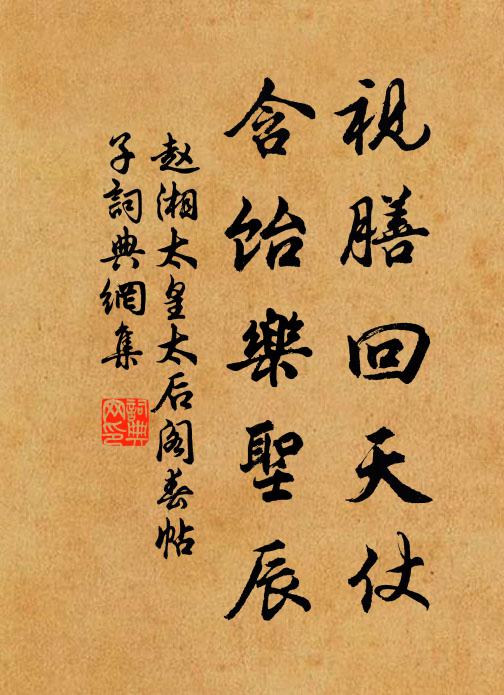 視膳回天仗
含飴樂聖辰
赵湘太皇太后阁春帖
子詞典網集
詞典
网印